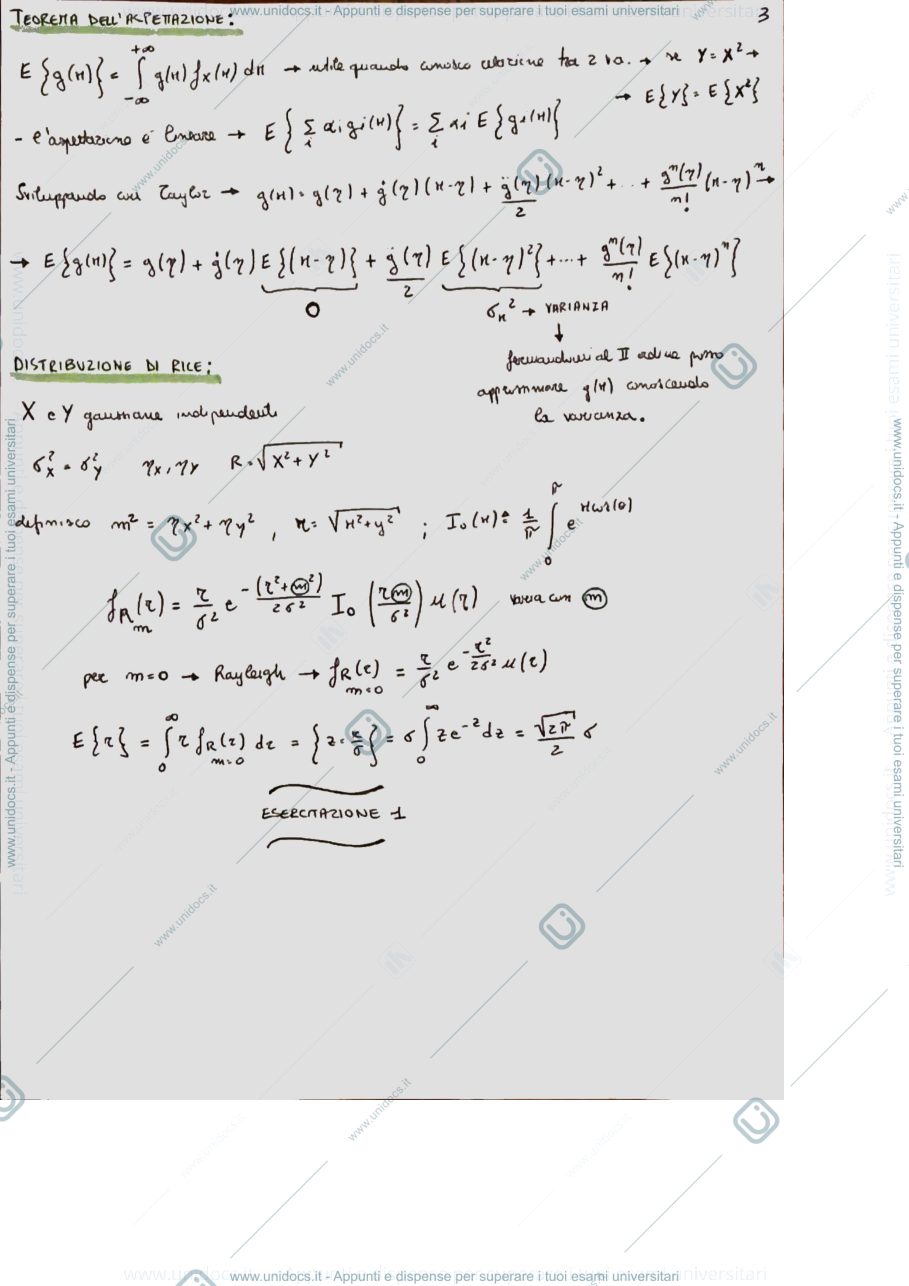 www.unidocs.it - Appunti e dispense per superare i tuoi esami universitari
3
TEOREMA DELL'ASPETTAZIONE:
E{g(x)} = ∫_{-∞}^{+∞} g(x) f_X(x) dx → utile quando conosco relazione tra 2 va. → se Y = X² →
→ E{Y} = E{X²}
- l'aspettazione è lineare → E{Σ_i αi gi(x)} = Σ_i αi E{gi(x)}
Sviluppando con Taylor → g(x) = g(η) + ġ(η)(x-η) + g̈(η)/2 (x-η)² + ... + gⁿ(η)/n! (x-η)ⁿ →
→ E{g(x)} = g(η) + ġ(η) E{(x-η)} + g̈(η)/2 E{(x-η)²} + ... + gⁿ(η)/n! E{(x-η)ⁿ}
0
σx² → VARIANZA
↓
fermandomi al II ordine posso
approssimare g(x) conoscendo
la varianza.
DISTRIBUZIONE DI RICE:
X e Y gaussiane indipendenti
σ²_X = σ²_Y ηx, ηy R = √(X² + Y²)
definisco m² = ηx² + ηy², r = √(x² + y²) ; I₀(x) ≜ 1/π ∫_0^π e^{x cos(θ)}
f_R(r)_m = r/σ² e^{-(r²+m²)/2σ²} I₀(rm/σ²) u(r) varia con m
per m=0 → Rayleigh → f_R(r)_{m=0} = r/σ² e^{-r²/2σ²} u(r)
E{r} = ∫_0^∞ r f_R(r)_{m=0} dr = {z = r/σ} = σ ∫_0^∞ z e^{-z} dz = √(2π)/2 σ
ESERCITAZIONE 1
www.unidocs.it - Appunti e dispense per superare i tuoi esami universitari